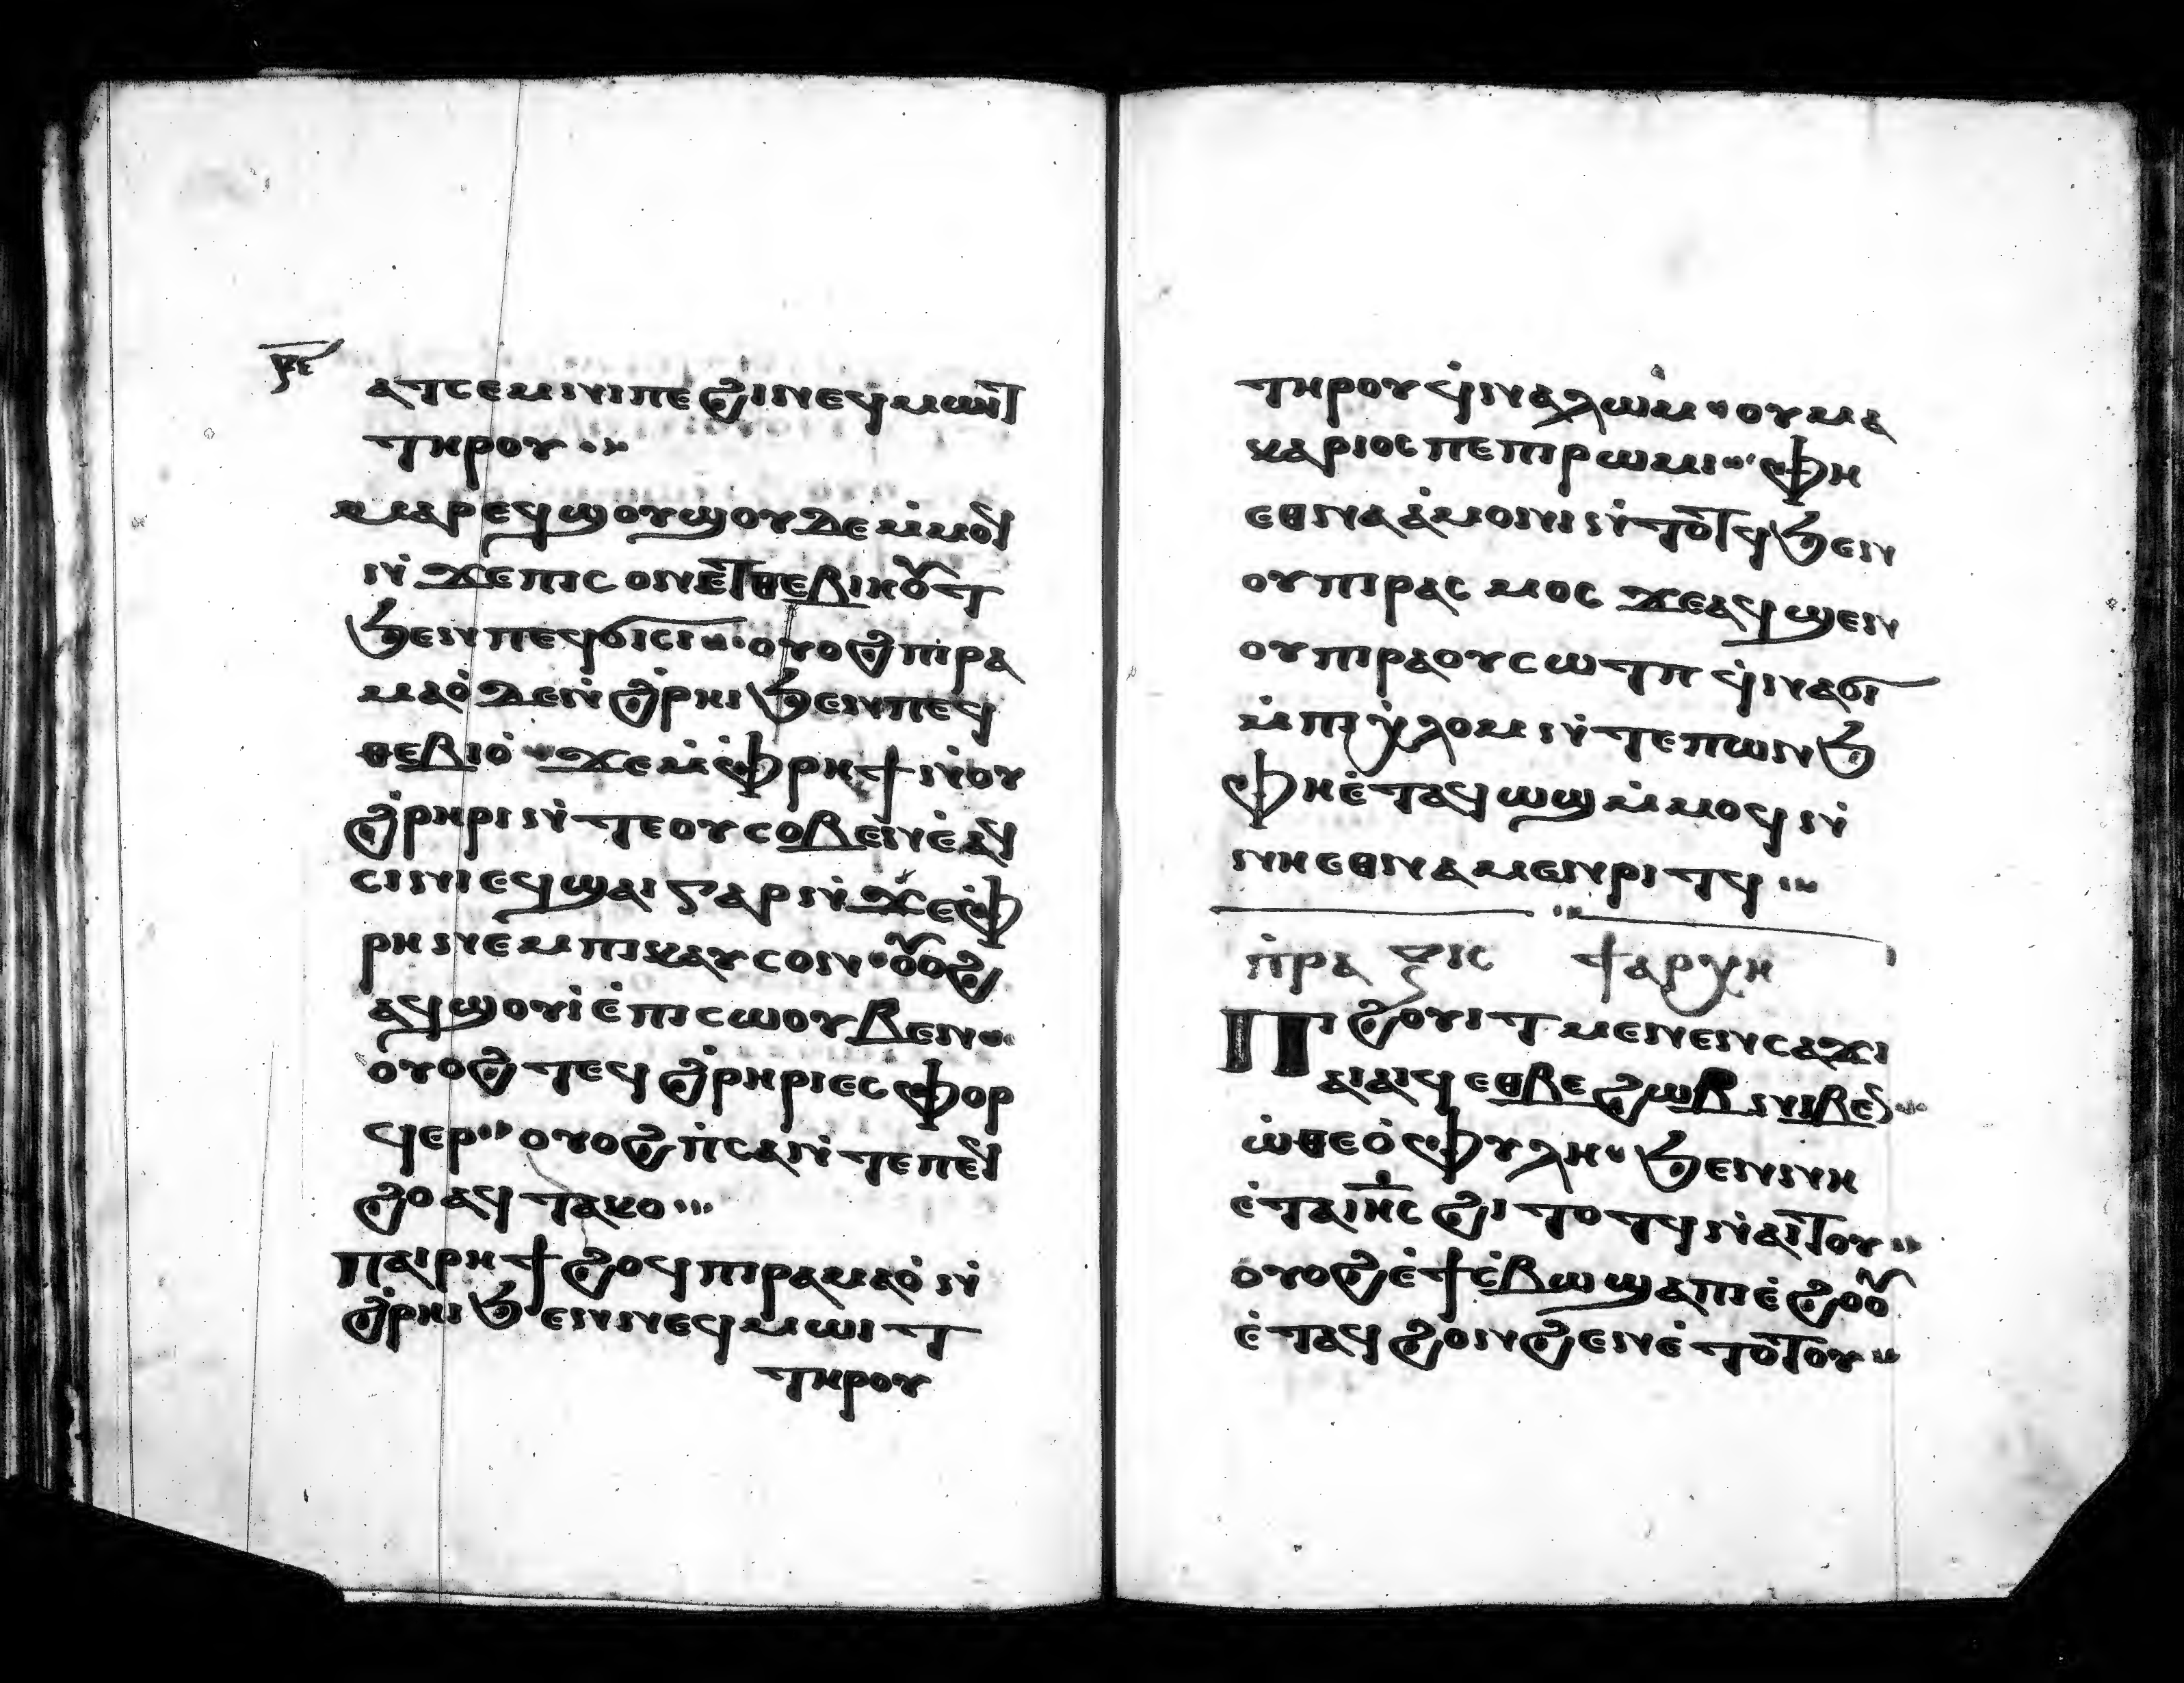 ⲣⲕⲉ
ⲁⲧⲥⲉⲙⲛⲓ ⲡⲉ ϩⲓ ⲛⲉϥⲙⲱⲓⲧ
ⲧⲏⲣⲟⲩ ⁖
ⲙⲁⲣⲉϥϣⲟⲩϣⲟⲩ ⲇⲉ ⲙ̇ⲙⲟϥ
ⲛ̇ϫⲉ ⲡⲓⲥⲟⲛ ⲉⲧⲑⲉⲃⲓⲏⲟⲩⲧ
ϧⲉⲛ ⲡⲉϥϭⲓⲥⲓ ⁖ ⲟⲩⲟϩ ⲡⲓⲣⲁ
ⲙⲁⲟ̇ ⲇⲉ ⲛ̇ϩ̇ⲣⲏⲓ ϧⲉⲛ ⲡⲉϥ
ⲑⲉⲃⲓⲟ̇ ⁖ ϫⲉ ⲙ̇ⲫ̇ⲣⲏϯ ⲛ̇ⲟⲩ
ϩ̇ⲣⲏⲣⲓ ⲛ̇ⲧⲉ ⲟⲩⲥⲟⲃⲉⲛ ⲉ̇ⲁϥ
ⲥⲓⲛⲓ ⲉϥϣⲁⲓ ⲅⲁⲣ ⲛ̇ϫⲉ ⲫ̇
ⲣⲏ ⲛⲉⲙ ⲡⲓⲕⲁⲩⲥⲟⲛ ⁖ ⲟⲩⲟϩ
ⲁϥϣⲟⲩⲓ̇ ⲉ̇ ⲡⲓⲥⲱⲟⲩⲃⲉⲛ ⁖
ⲟⲩⲟϩ ⲧⲉϥϩ̇ⲣⲏⲣⲓ ⲉⲥⲫⲟⲣ
ϥⲉⲣ ⁖ ⲟⲩⲟϩ ⲡ̇ⲥⲁ ⲛ̇ⲧⲉ ⲡⲉϥ
ϩⲟ ⲁϥⲧⲁⲕⲟ ⁖
ⲡⲁⲓⲣⲏϯ ϩⲱϥ ⲡⲓⲣⲁⲙⲁⲟ̇ ⲛ̇
ϩ̇ⲣⲏⲓ ϧⲉⲛ ⲛⲉϥⲙⲱⲓⲧ
ⲧⲏⲣⲟⲩ
ⲧⲏⲣⲟⲩ ϥ̇ⲛⲁⲗⲱⲙ ⁖ ⲟⲩⲙⲁ
ⲕⲁⲣⲓⲟⲥ ⲡⲉ ⲡⲓⲣⲱⲙⲓ ⁖ ⲫⲏ
ⲉⲑⲛⲁⲁ̇ⲙⲟⲛⲓ ⲛ̇ⲧⲟⲧϥ ϧⲉⲛ
ⲟⲩⲡⲓⲣⲁⲥⲙⲟⲥ ϫⲉ ⲁϥϣⲉⲛ
ⲟⲩⲡⲓⲣⲁ ⲟⲩⲥⲱⲧⲡ ϥ̇ⲛⲁϭⲓ
ⲙ̇ⲡⲓⲭ̇ⲗⲟⲙ ⲛ̇ⲧⲉ ⲡⲱⲛϧ
ⲫⲏ ⲉ̇ⲧⲁϥⲱϣ ⲙ̇ⲙⲟϥ ⲛ̇
ⲛⲏⲉⲑⲛⲁⲙⲉⲛⲣⲓⲧϥ ⁖
ⲡ̇ⲣⲁⲝⲓⲥ ϯⲁⲣⲭⲏ
Ⲡⲓϩⲟⲩⲓⲧ ⲙⲉⲛ ⲉⲛⲥⲁϫⲓ
ⲁⲓⲁⲓϥ ⲉⲑⲃⲉ ϩⲱⲃ ⲛⲓⲃⲉⲛ ⁖
ⲱ̇ ⲑⲉⲟ̇ⲫⲩⲗⲏ ⁖ ϧⲉⲛ ⲛⲏ
ⲉ̇ⲧⲁ ⲓⲏⲥ ϩⲓⲧⲟⲧϥ ⲛ̇ⲁⲓⲧⲟⲩ ⁖
ⲟⲩⲟϩ ⲉ̇ϯⲥ̇ⲃⲱ ϣⲁ ⲡⲓⲉ̇ϩⲟⲟⲩ
ⲉ̇ⲧⲁϥϩⲟⲛϩⲉⲛ ⲉ̇ⲧⲟⲧⲟⲩ ⁖